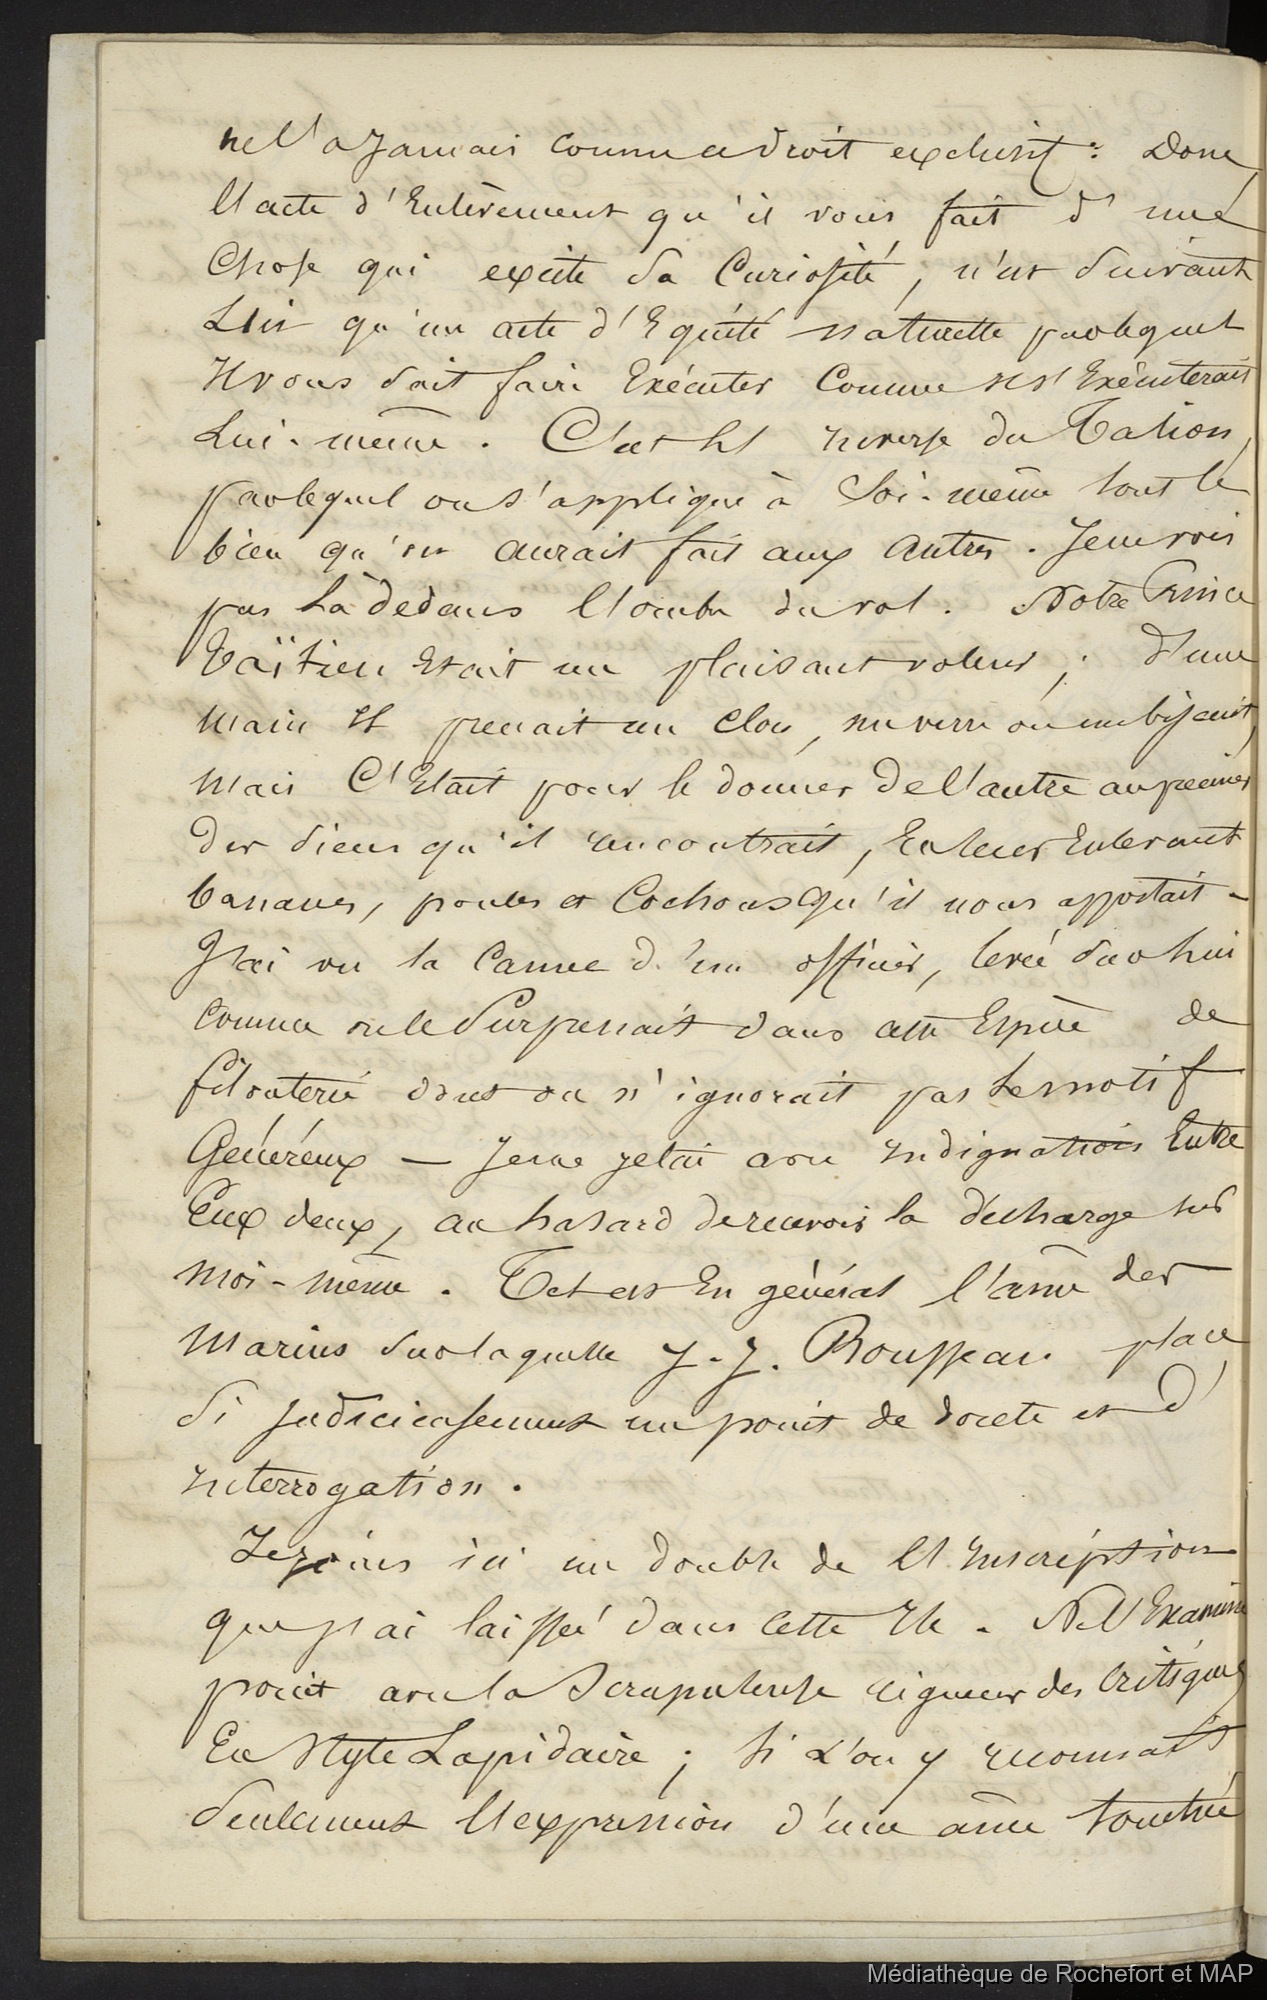 ne l'a Jamais connu ce droit exclusif : Donc
l'acte d'Enlèvement qu'il vous fait d'une
Chose qui excite sa Curiosité, n'est suivant
Lui qu'un acte d'Equité naturelle par lequel
Il vous doit faire Exécuter Comme Il s'Exécuterait
Lui-même. C'est l'inverse du Talion,
par lequel on s'applique à Soi-même tout le
bien qu'on aurait fait aux Autres. Je ne vois
pas Là dedans l'ombre du vol. Notre Prince
Taïtien Etait un plaisant voleur ; d'une
main Il prenait un Clou, un verre ou un biscuit,
Mais C'Etait pour le donner De l'autre au premier
Des siens qu'il rencontrait, En leur Enlevant
bananes, poules et Cochons qu'il nous apportait -
J'ai vu la Canne d'un officier, levée sur lui
Comme on le Surprenait dans cette Espèce de
filouterie dont on n'ignorait pas Le motif
Généreux — Je me jetai avec Indignation Entre
Eux deux, au hasard de recevoir la décharge sur
moi-même. Tel est En général l'ame des
Marins sur laquelle J. J. Rousseau place
Si Judicieusement un point de doute et d'
Interrogation.
Je joins ici un double de l'Inscription
que j'ai laissée dans Cette Ile. Ne l'Examine
point avec la Scrupuleuse rigueur des Critiques
En Style Lapidaire ; si L'on y reconnait
Seulement l'expression d'une ame touchée
Médiathèque de Rochefort et MAP